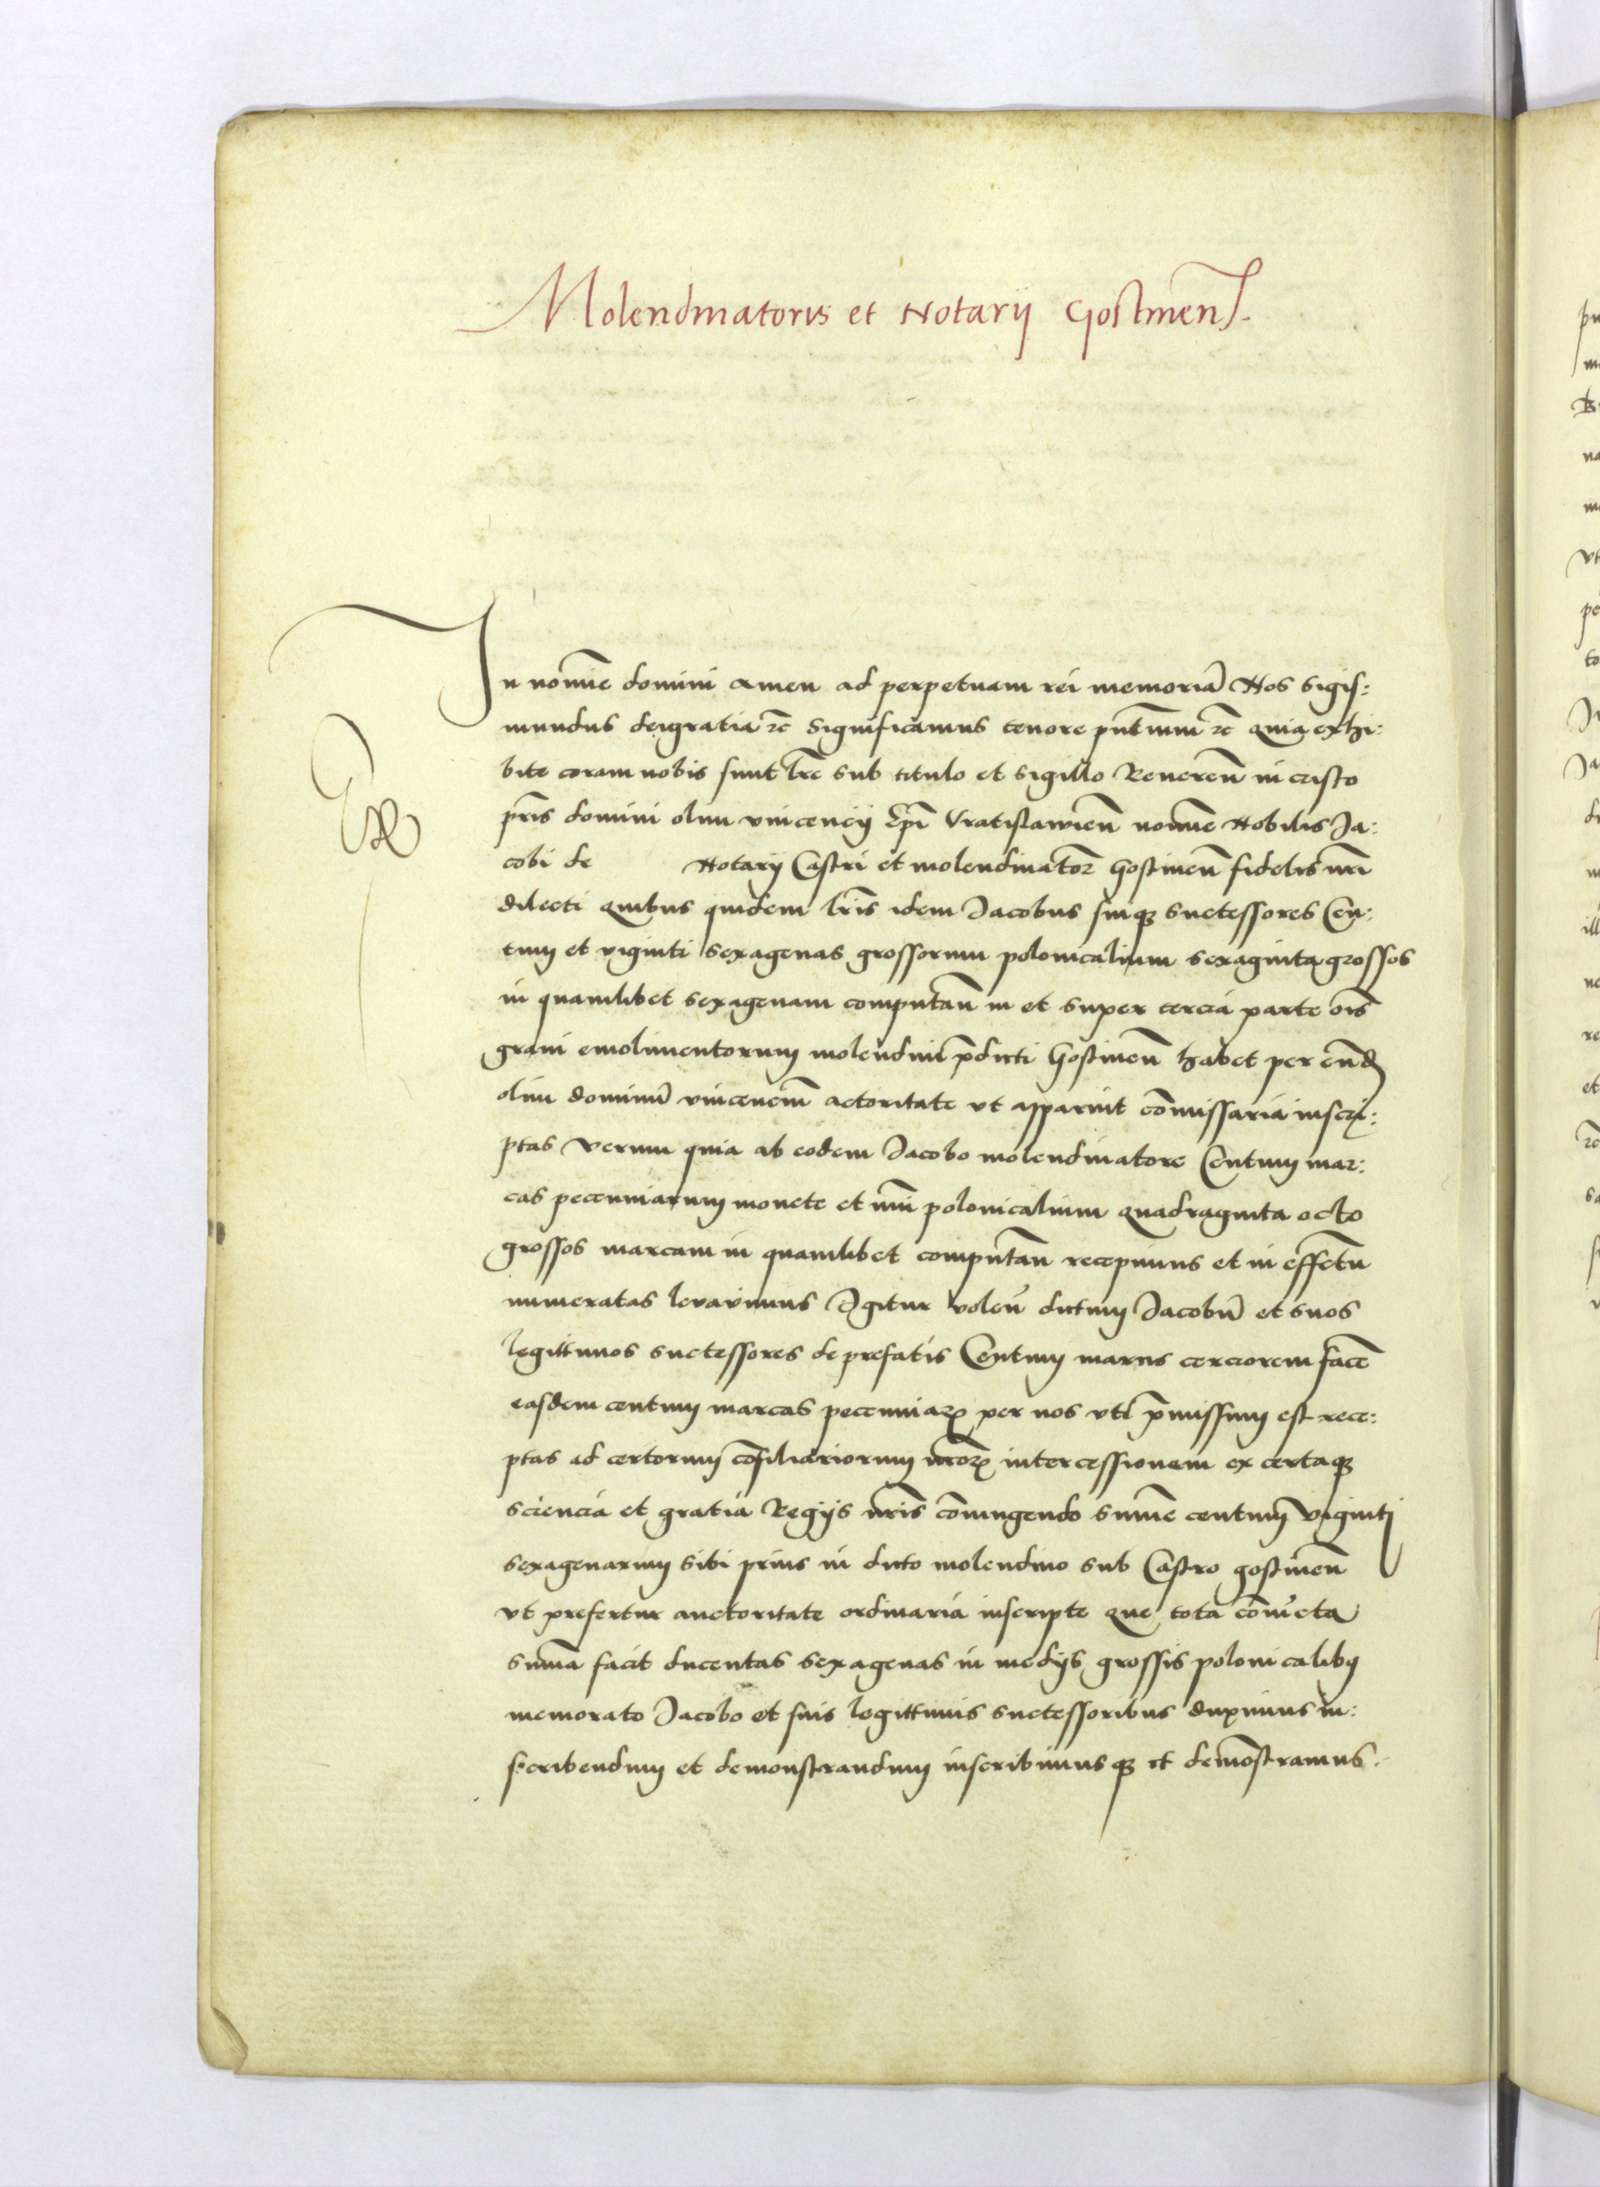 Molendinatoris et Notarij Gostinens.
In nomīe domini amen ad perpetuam rei memoriā Nos Sigis:
mundus deigratia rc̄ Significamus tenore pn̄tium rc̄ quia exhi:
bite coram nobis sunt lrē sub titulo et sigillo Reueren̄ in cristo
pr̄is domini olim vincencij Ep̄i Vratislawien̄ nomīe Nobilis Ja:
cobi de Notarij Castri et molendinator̄ Gostinen̄ fidelis nr̄i
dilecti quibus quidem lr̄is idem Jacobus suiqz successores Cen:
tum et viginti sexagenas grossorum polonicalium sexaginta grossos
in quamlibet sexagenam computan̄ in et super tercia parte om̄is
grani emolimentorum molendini p̄dicti Gostinen̄ habet per eund
olim dominū vincenciū actoritate vt apparuit com̄issaria inscri:
ptas Verum quia ab eodem Jacobo molendinatore Centum mar:
cas pecuniarum monete et nūi polonicalium quadraginta octo
grossos marcam in quamlibet computan̄ recepimus et in effectu
numeratas leuauimus Igitur volen̄ dictum Jacobū et suos
legittimos successores de prefatis Centum marcis cerciorem facē
easdem centum marcas pecuniarꝝ per nos vti p̄missum est rece:
ptas ad certorum con̄siliariorum nr̄orꝝ intercessionem ex certaqz
sciencia et gratia Regijs nr̄is coniungendo sum̄e centum viginti
sexagenarum sibi prius in dicto molendino sub Castro gostinen̄
vt prefertur auctoritate ordinaria inscripte que tota coniūcta
sum̄a facit ducentas sexagenas in medijs grossis polonicalibꝫ
memorato Jacobo et suis legittimis successoribus duximus in:
scribendum et demonstrandum inscribimusqz et demōstramus.